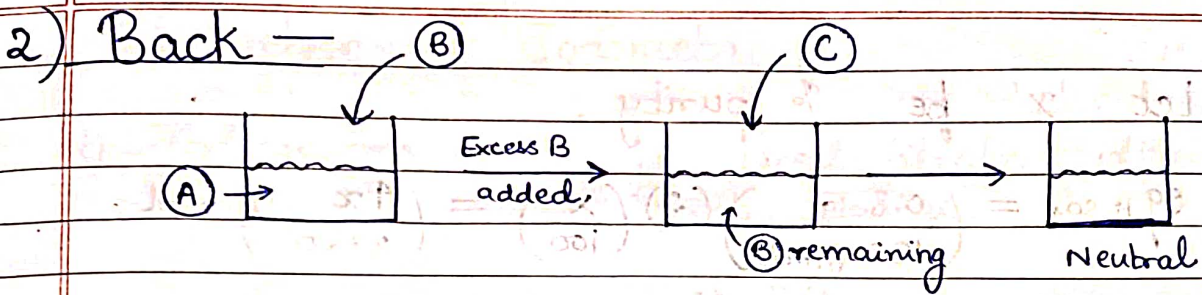 2) Back —
B
C
A
Excess B
added.
B remaining
Neutral